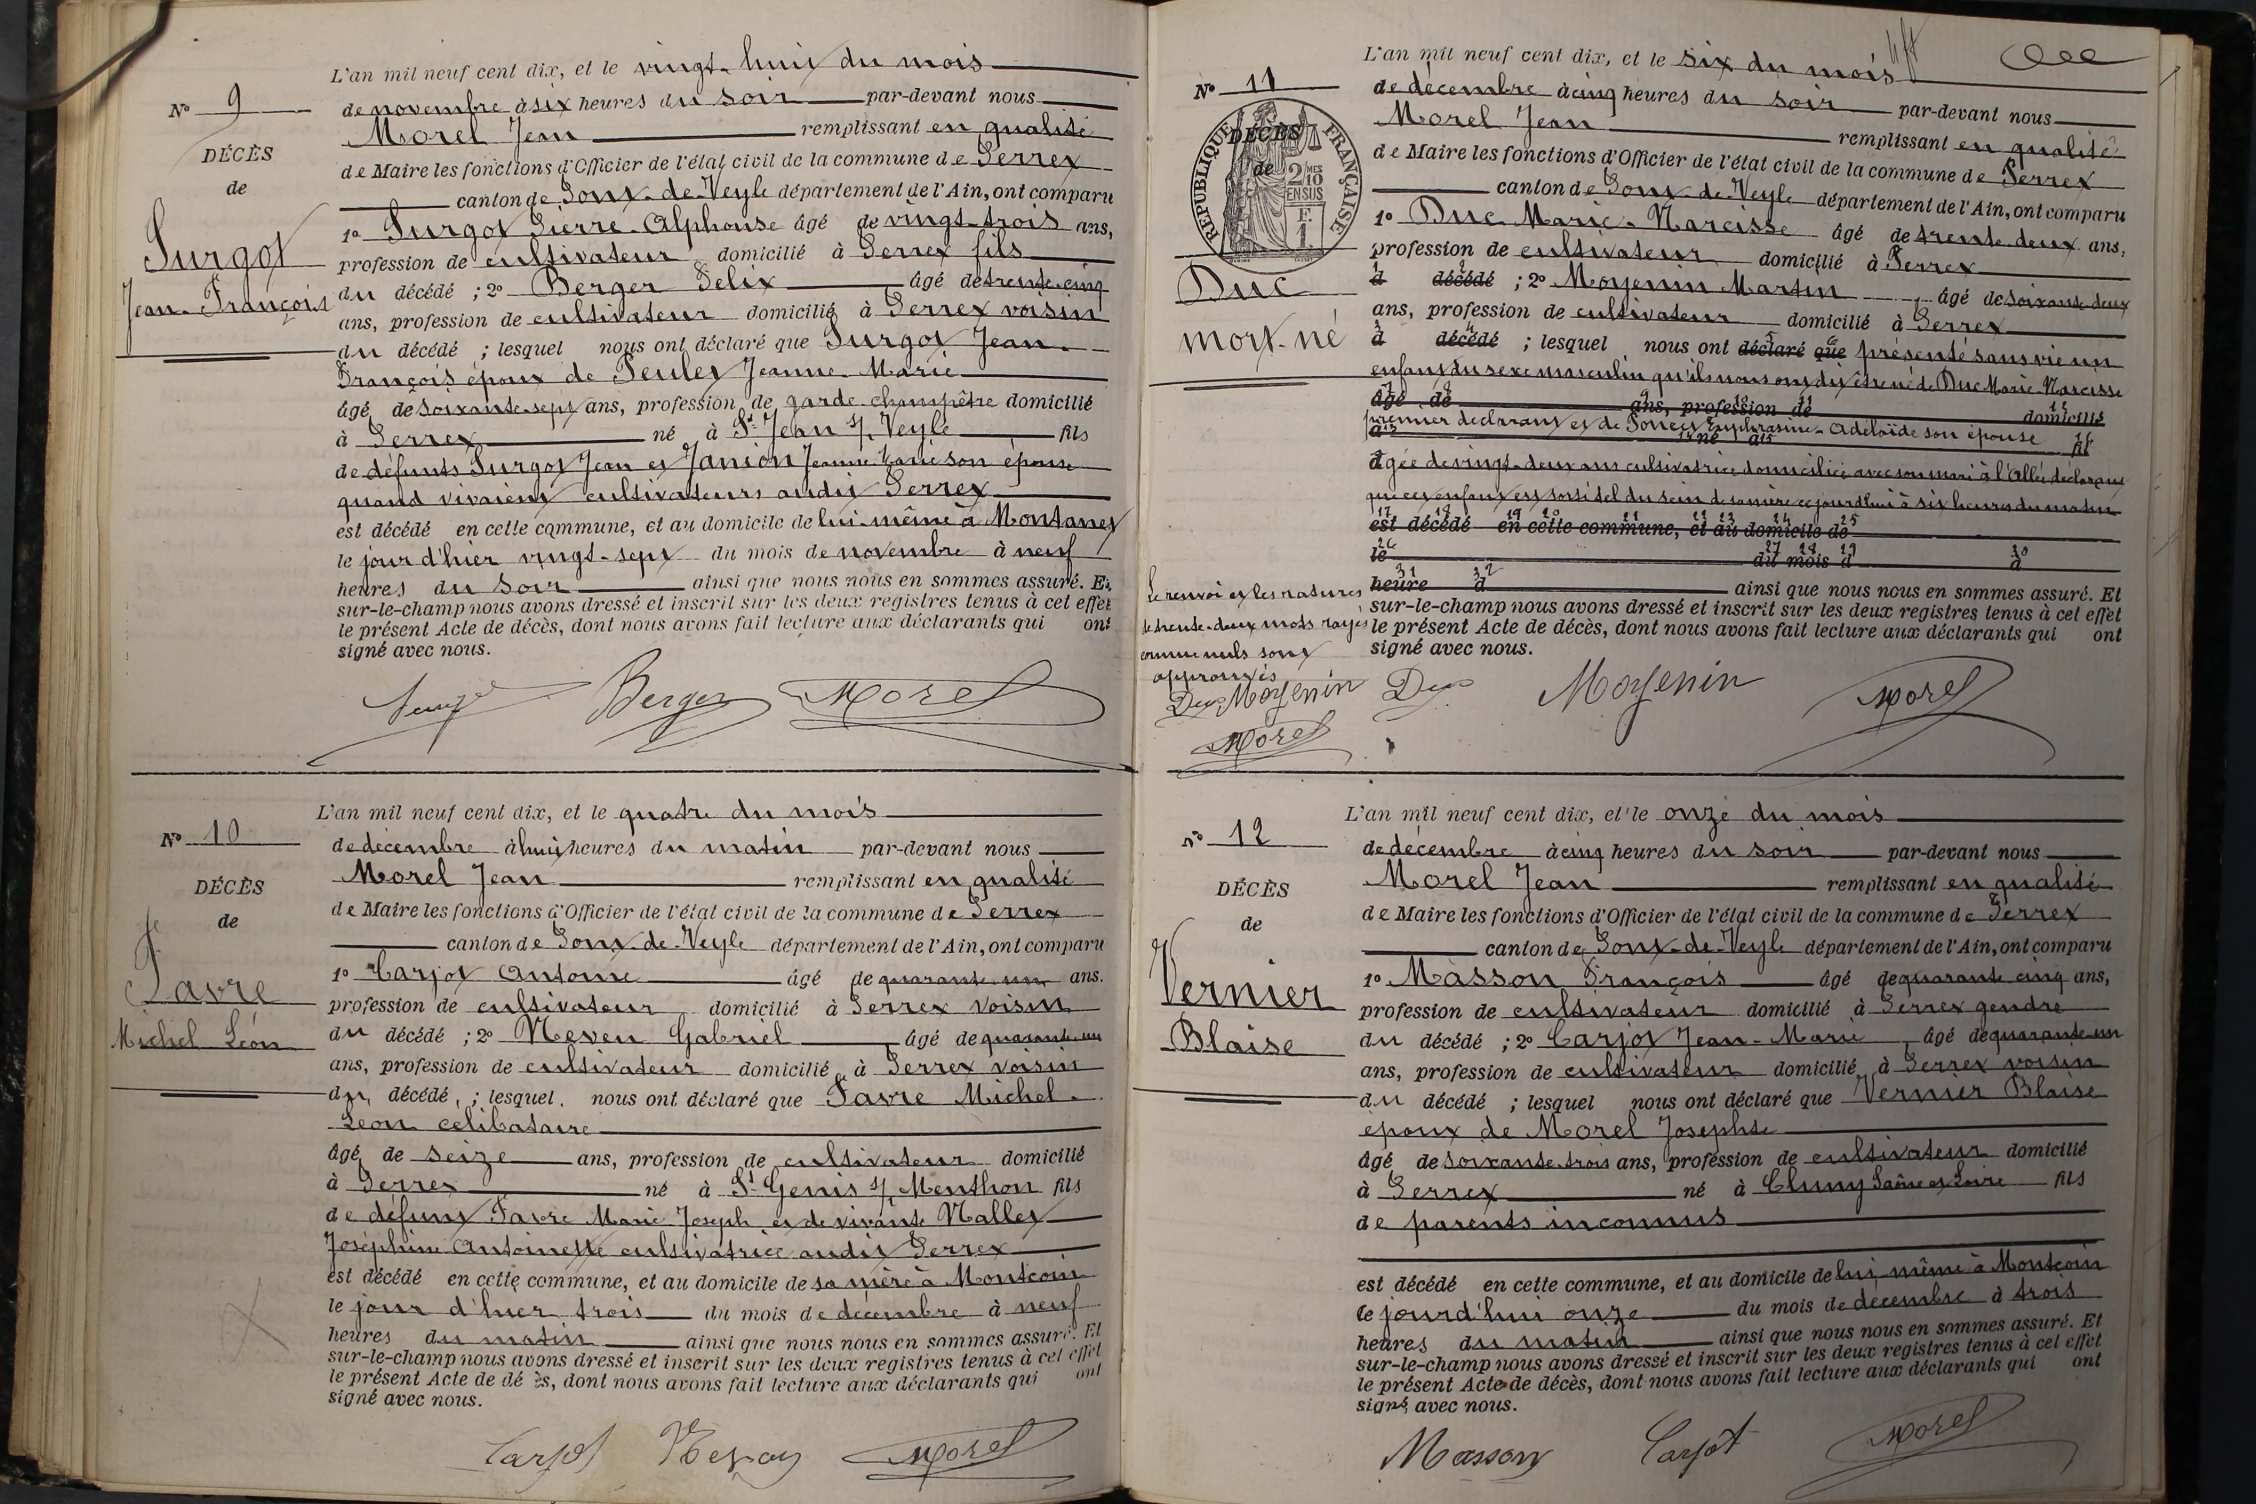 L'an mil neuf cent dix, et le vingt-huit du mois
Nº 9
de novembre à six heures du soir par-devant nous
Morel Jean remplissant en qualité
DÉCÈS
de Maire les fonctions d'Officier de l'état civil de la commune de Perrex
de
canton de Pont-de-Veyle département de l'Ain, ont comparu
1º Surgot Pierre-Alphonse âgé de vingt-trois ans,
Surgot
profession de cultivateur domicilié à Perrex fils
Jean-François
du décédé ; 2º Berger Félix âgé de trente-cinq
ans, profession de cultivateur domicilié à Perrex voisin
du décédé ; lesquel nous ont déclaré que Surgot Jean-
François époux de Jeanne-Marie
âgé de soixante-sept ans, profession de garde-champêtre domicilié
à Perrex né à St Jean s/ Veyle fils
de défunts Surgot Jean et Janion Jeanne-Marie son épouse
quand vivaient cultivateurs audit Perrex
est décédé en cette commune, et au domicile de lui-même à Montanet
le jour d'hier vingt-sept du mois de novembre à neuf
heures du soir ainsi que nous nous en sommes assuré. Et
sur-le-champ nous avons dressé et inscrit sur les deux registres tenus à cet effet
le présent Acte de décès, dont nous avons fait lecture aux déclarants qui ont
signé avec nous.
Berger Morel
L'an mil neuf cent dix, et le quatre du mois
Nº 10
de décembre à huit heures du matin par-devant nous
Morel Jean remplissant en qualité
DÉCÈS
de Maire les fonctions d'Officier de l'état civil de la commune de Perrex
de
canton de Pont-de-Veyle département de l'Ain, ont comparu
1º Carjot Antoine âgé de quarante-un ans.
Favre
profession de cultivateur domicilié à Perrex voisin
Michel Léon
du décédé ; 2º Neven Gabriel âgé de quarante-un
ans, profession de cultivateur domicilié à Perrex voisin
du décédé, ; lesquel. nous ont déclaré que Favre Michel-
Léon célibataire
âgé de seize ans, profession de cultivateur domicilié
à Perrex né à St Genis s/ Menthon fils
de défunt Favre Marie-Joseph et de vivante Nallet
Joséphine Antoinette cultivatrice audit Perrex
est décédé en cette commune, et au domicile de sa mère à Montcoin
le jour d'hier trois du mois de décembre à neuf
heures du matin ainsi que nous nous en sommes assuré. Et
sur-le-champ nous avons dressé et inscrit sur les deux registres tenus à cet effet
le présent Acte de dé ès, dont nous avons fait lecture aux déclarants qui ont
signé avec nous.
Carjot Morel
L'an mil neuf cent dix, et le six du mois
Nº 11
de décembre à cinq heures du soir par-devant nous
Morel Jean remplissant en qualité
DÉCÈS
de Maire les fonctions d'Officier de l'état civil de la commune de Perrex
de
RÉPUBLIQUE FRANÇAISE
2/10 MES EN SUS
F. 1.
canton de Pont-de-Veyle département de l'Ain, ont comparu
1º Duc Marie-Narcisse âgé de trente-deux ans,
profession de cultivateur domicilié à Perrex
Duc
d décédé ; 2º Moyenin Martin âgé de soixante-deux
mort-né
ans, profession de cultivateur domicilié à Perrex
d décédé ; lesquel nous ont déclaré que présenté sans vie un
enfant du sexe masculin qu'ils nous ont dit être né de Duc Marie-Narcisse
âgé de ans, profession de domicilié
premier déclarant et de Euphrasine-Adélaïde son épouse
à né à fil
âgée de vingt-deux ans cultivatrice domiciliée avec son mari à l'Allée déclarant
que cet enfant est sorti tel du sein de sa mère ce jourd'hui à six heures du matin
est décédé en cette commune, et au domicile de
le du mois d à
heure d ainsi que nous nous en sommes assuré. Et
sur-le-champ nous avons dressé et inscrit sur les deux registres tenus à cet effet
le présent Acte de décès, dont nous avons fait lecture aux déclarants qui ont
signé avec nous.
Le renvoi et les ratures
de trente-deux mots rayés
comme nuls sont
approuvés
Duc Moyenin
Morel
Duc Moyenin Morel
L'an mil neuf cent dix, et le onze du mois
Nº 12
de décembre à cinq heures du soir par-devant nous
Morel Jean remplissant en qualité
DÉCÈS
de Maire les fonctions d'Officier de l'état civil de la commune de Perrex
de
canton de Pont-de-Veyle département de l'Ain, ont comparu
1º Masson François âgé de quarante-cinq ans,
Vernier
profession de cultivateur domicilié à Perrex gendre
Blaise
du décédé ; 2º Carjot Jean-Marie, âgé de quarante-un
ans, profession de cultivateur domicilié à Perrex voisin
du décédé ; lesquel nous ont déclaré que Vernier Blaise
époux de Morel Josephte
âgé de soixante-trois ans, profession de cultivateur domicilié
à Perrex né à Cluny Saône et Loire fils
de parents inconnus
est décédé en cette commune, et au domicile de lui-même à Montcoin
le jourd'hui onze du mois de décembre à trois
heures du matin ainsi que nous nous en sommes assuré. Et
sur-le-champ nous avons dressé et inscrit sur les deux registres tenus à cet effet
le présent Acte de décès, dont nous avons fait lecture aux déclarants qui ont
signé avec nous.
Masson Carjot Morel